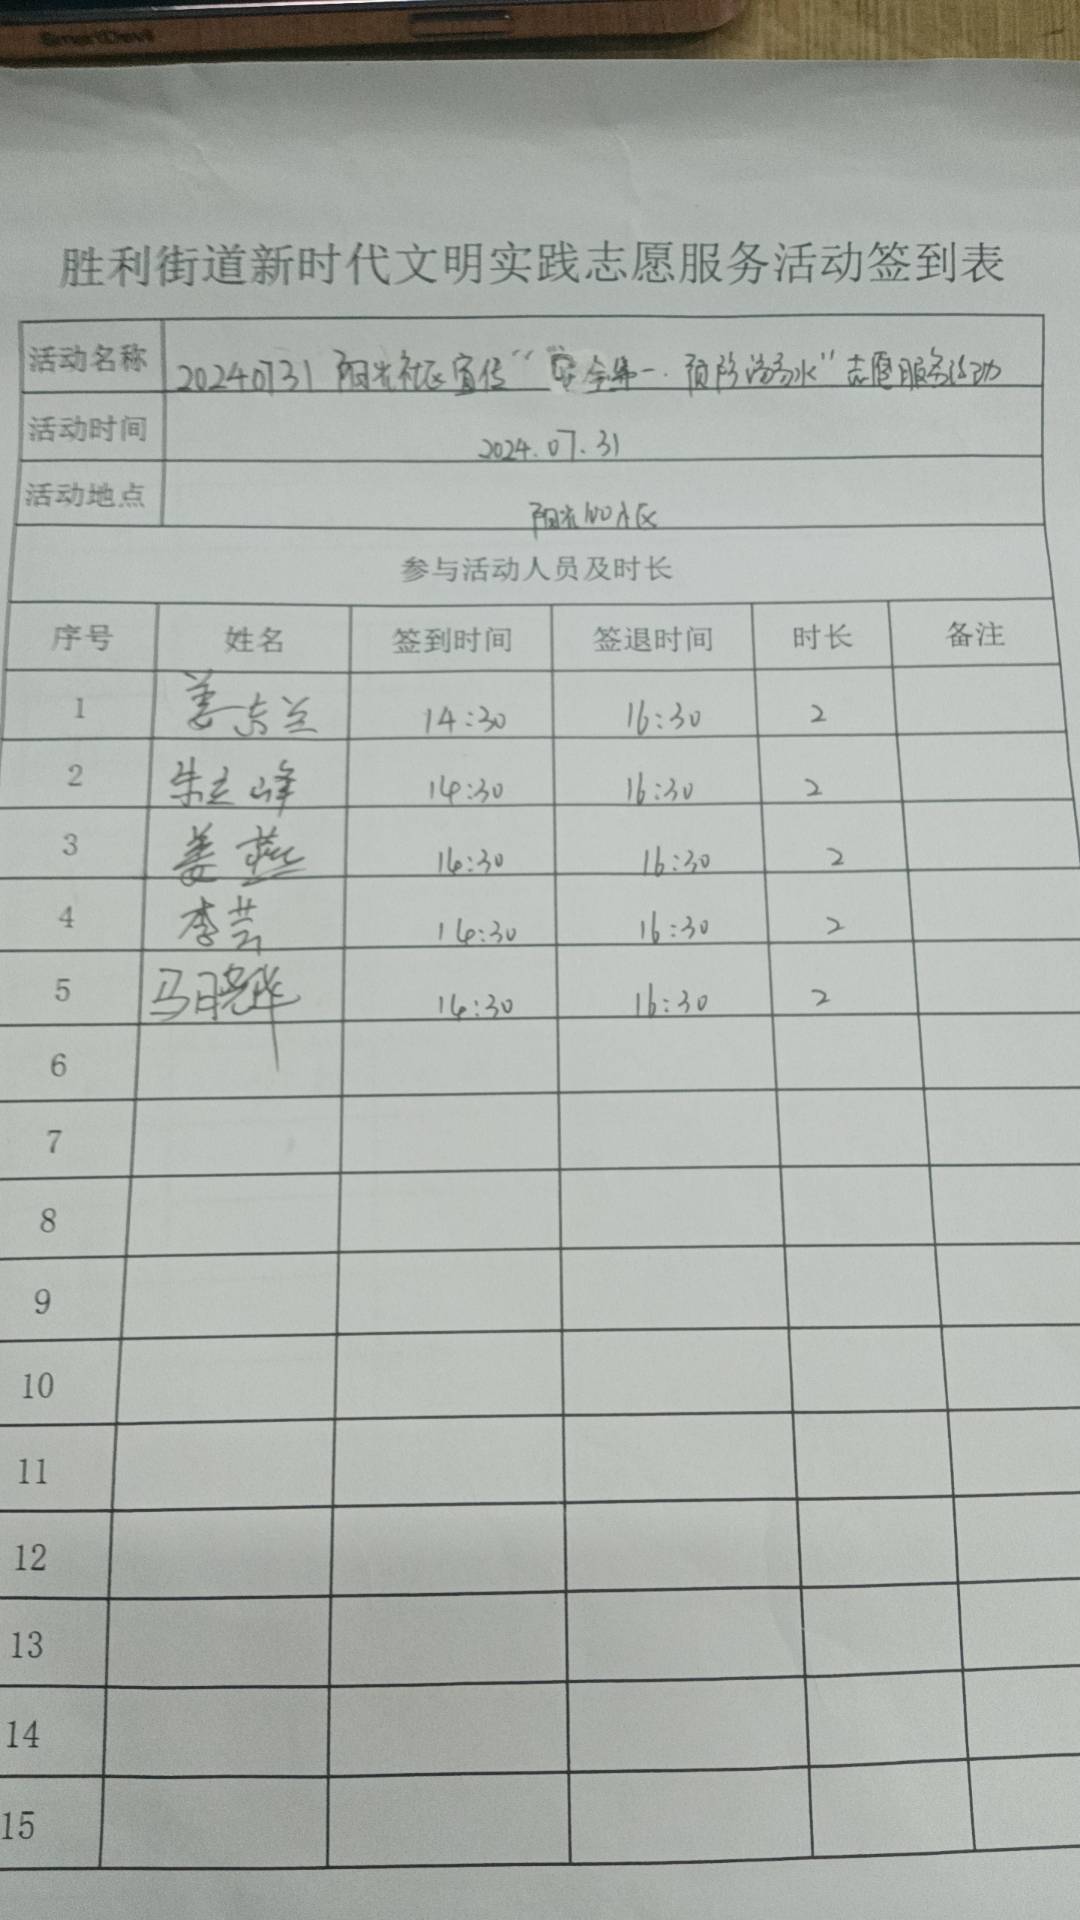 SmartDevil
胜利街道新时代文明实践志愿服务活动签到表
活动名称 20240731 阳光社区宣传“安全第一.预防溺水”志愿服务活动
活动时间 2024.07.31
活动地点 阳光100小区
参与活动人员及时长
序号 姓名 签到时间 签退时间 时长 备注
1 姜 兰 14:30 16:30 2
2 朱立峰 14:30 16:30 2
3 姜燕 14:30 16:30 2
4 李芸 14:30 16:30 2
5 马晓华 14:30 16:30 2
6
7
8
9
10
11
12
13
14
15